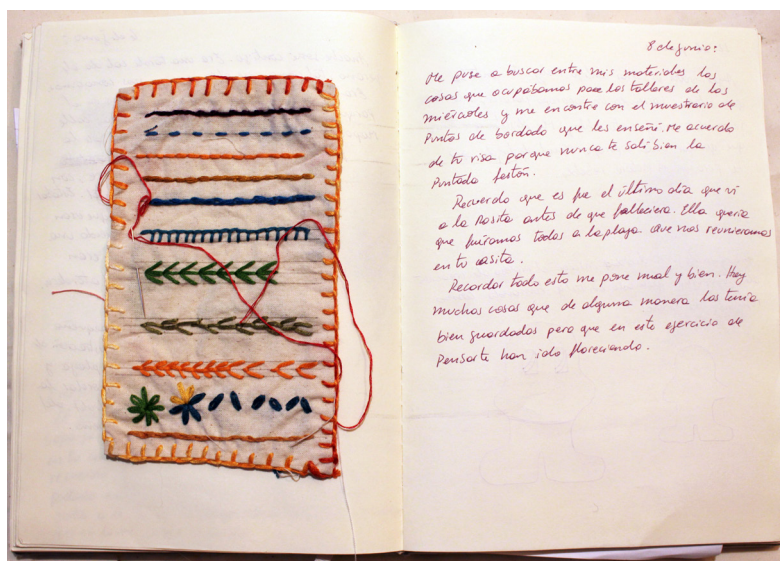 8 de junio:
Me puse a buscar entre mis materiales las
cosas que ocupábamos para los talleres de los
miércoles y me encontré con el muestrario de
puntos de bordado que les enseñé. Me acuerdo
de tu risa porque nunca te salió bien la
puntada festón.
Recuerdo que es fue el último día que vi
a la Rosita antes de que falleciera. Ella quería
que fuéramos todos a la playa. Que nos reuniéramos
en tu casita.
Recordar todo esto me pone mal y bien. Hay
muchas cosas que de alguna manera las tenía
bien guardadas pero que en este ejercicio de
pensarte han ido floreciendo.